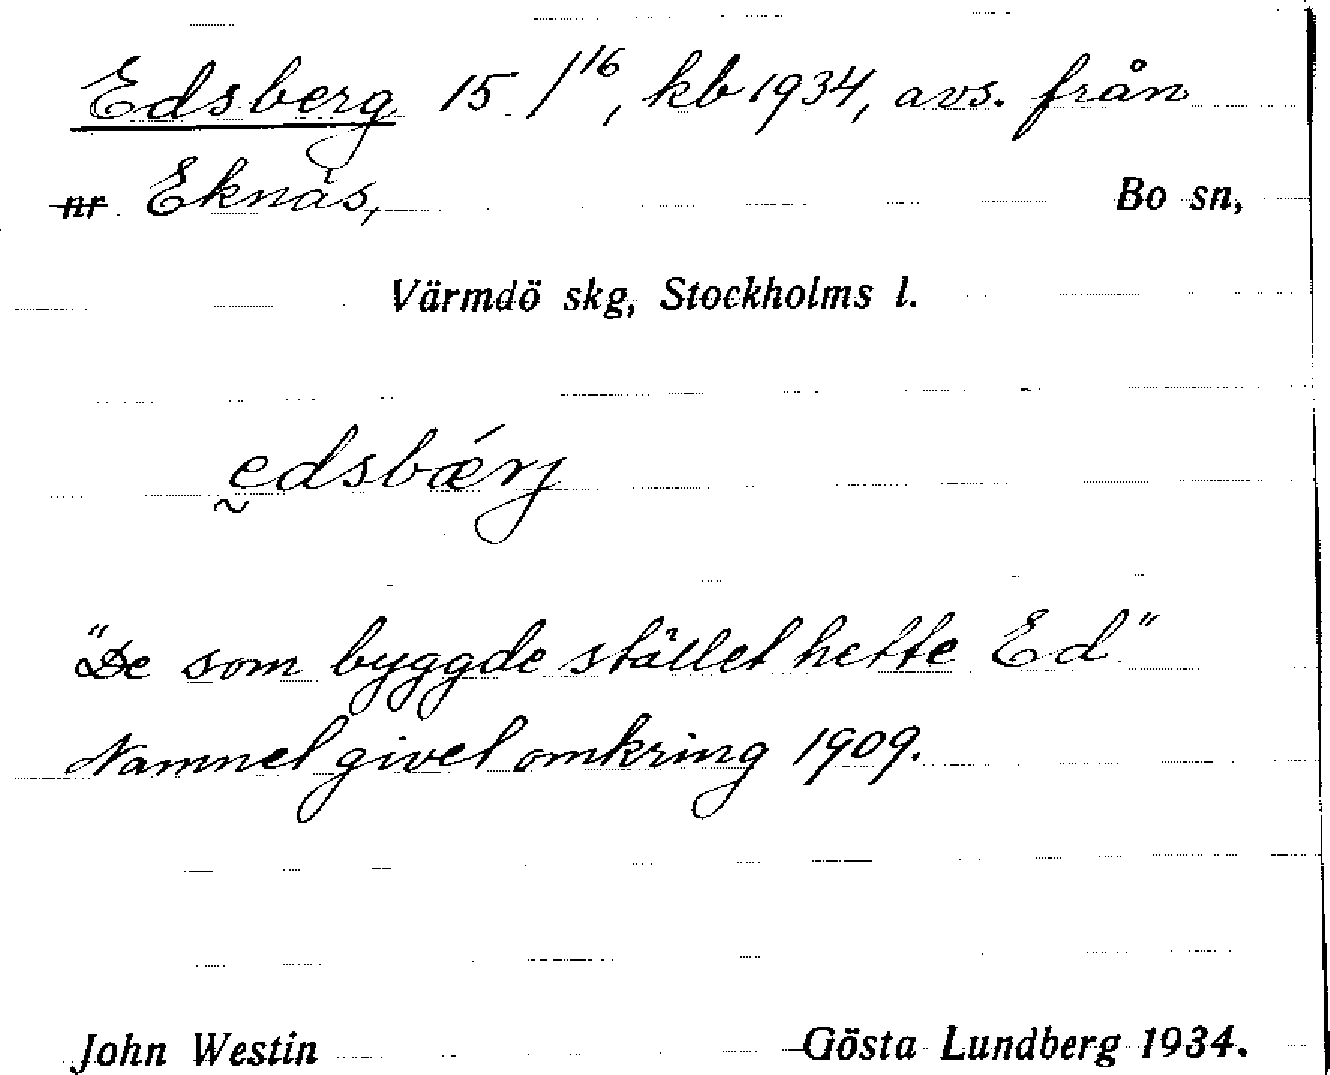 Edsberg 15 /16, kb 1934, avs. från
nr Eknäs, Bo sn,
Värmdö skg, Stockholms l.
edsbǽrj
"De som byggde stället hette Ed"
Namnet givet omkring 1909.
John Westin Gösta Lundberg 1934.